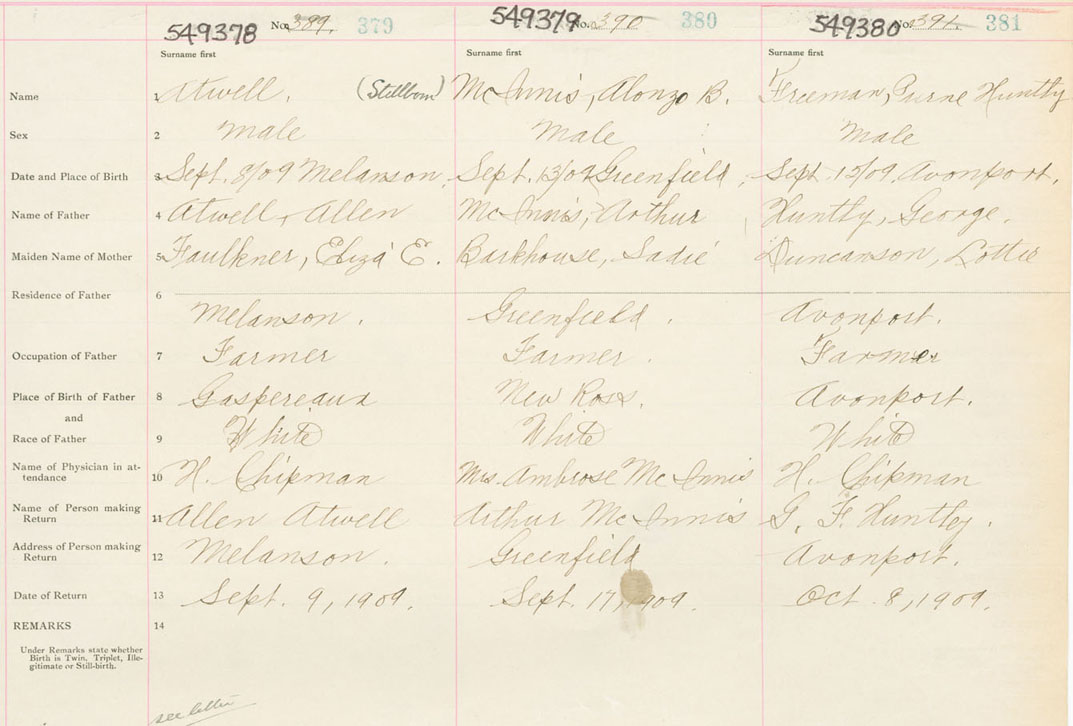 549378 No. 389. 379 549379 No. 390 380 549380 No. 391 381
Surname first Surname first Surname first
Name 1 Atwell. (Stillborn) McInnis, Alonzo B. Freeman, Huntly
Sex 2 male Male Male
Date and Place of Birth 3 Sept. 8/09 Melanson. Sept. 13/09 Greenfield Sept 15/09. Avonport.
Name of Father 4 Atwell, Allen McInnis, Arthur Huntly, George.
Maiden Name of Mother 5 Faulkner, Eliza E. Barkhouse, Sadie Duncanson, Lottie
Residence of Father 6
Melanson. Greenfield. Avonport.
Occupation of Father 7 Farmer Farmer. Farmer
Place of Birth of Father 8 Gaspereaux New Ross. Avonport.
and
Race of Father 9 White White White
Name of Physician in at-
tendance 10 H. Chipman Mrs. Ambrose McInnis H. Chipman
Name of Person making
Return 11 Allen Atwell Arthur McInnis G. F. Huntley.
Address of Person making
Return 12 Melanson. Greenfield Avonport.
Date of Return 13 Sept. 9, 1909. Sept. 17, 1909. Oct. 8, 1909.
REMARKS 14
Under Remarks state whether
Birth is Twin, Triplet, Ille-
gitimate or Still-birth.
see letter